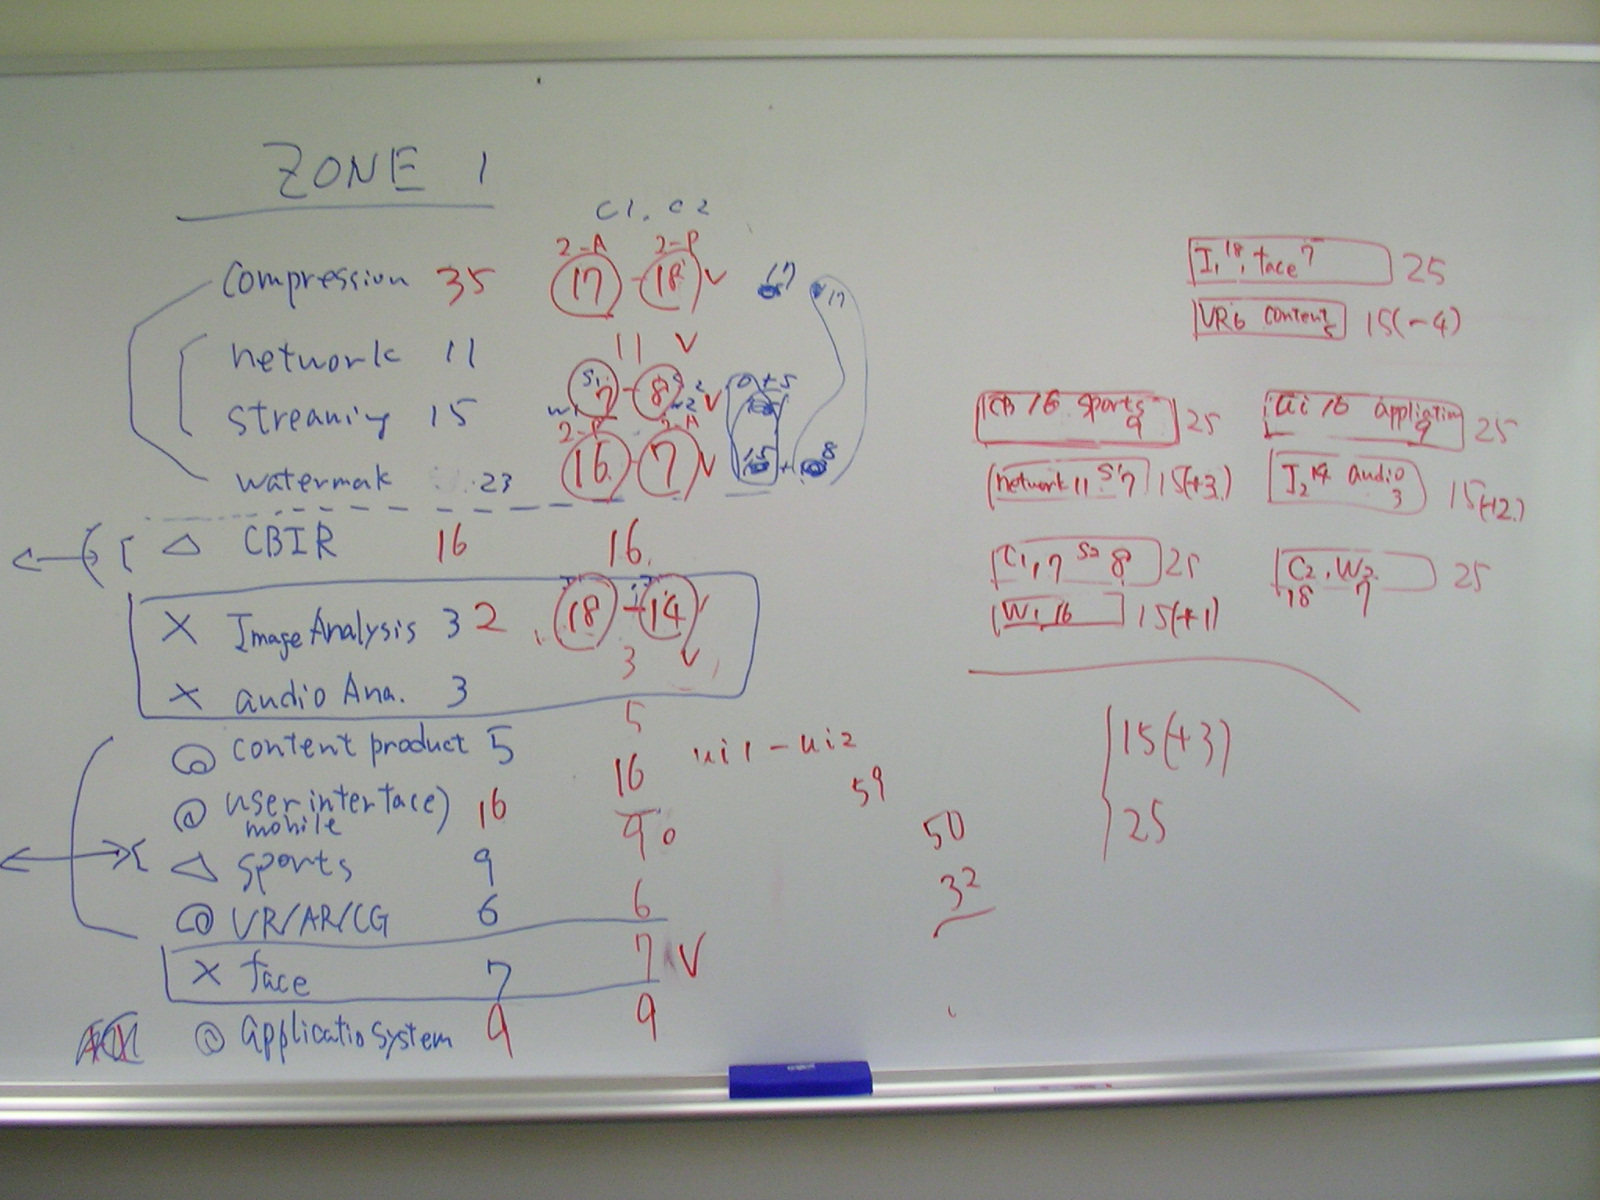 ZONE 1
C1. C2
2-A 2-P
Compression 35 17 - 18 V 17 17
network 11 11 V
S1 7 - 8 V 0+5
streaming 15
W1 W2
2-P 2-A
watermak 23 16 - 7 V 15 + 8
△ CBIR 16 16.
X Image Analysis 32 18 - 14
X audio Ana. 3 3 V
@ content product 5 5
@ user interface) 16 16 ui1 - ui2
mobile
59
△ sports 9 9
@ VR/AR/CG 6 6
X face 7 7 V
@ applicatio system 9 9
50
32
I1 18, face 7 25
VR6 content 5 15(-4)
CB 16 sports 9 25
Ui 16 application 9 25
network 11 S1 7 15(+3)
I2 14 audio 3 15(+2)
C1, 7 S2 8 25
C2, W2 25
18 7
W1 16 15(+1)
15(+3)
25